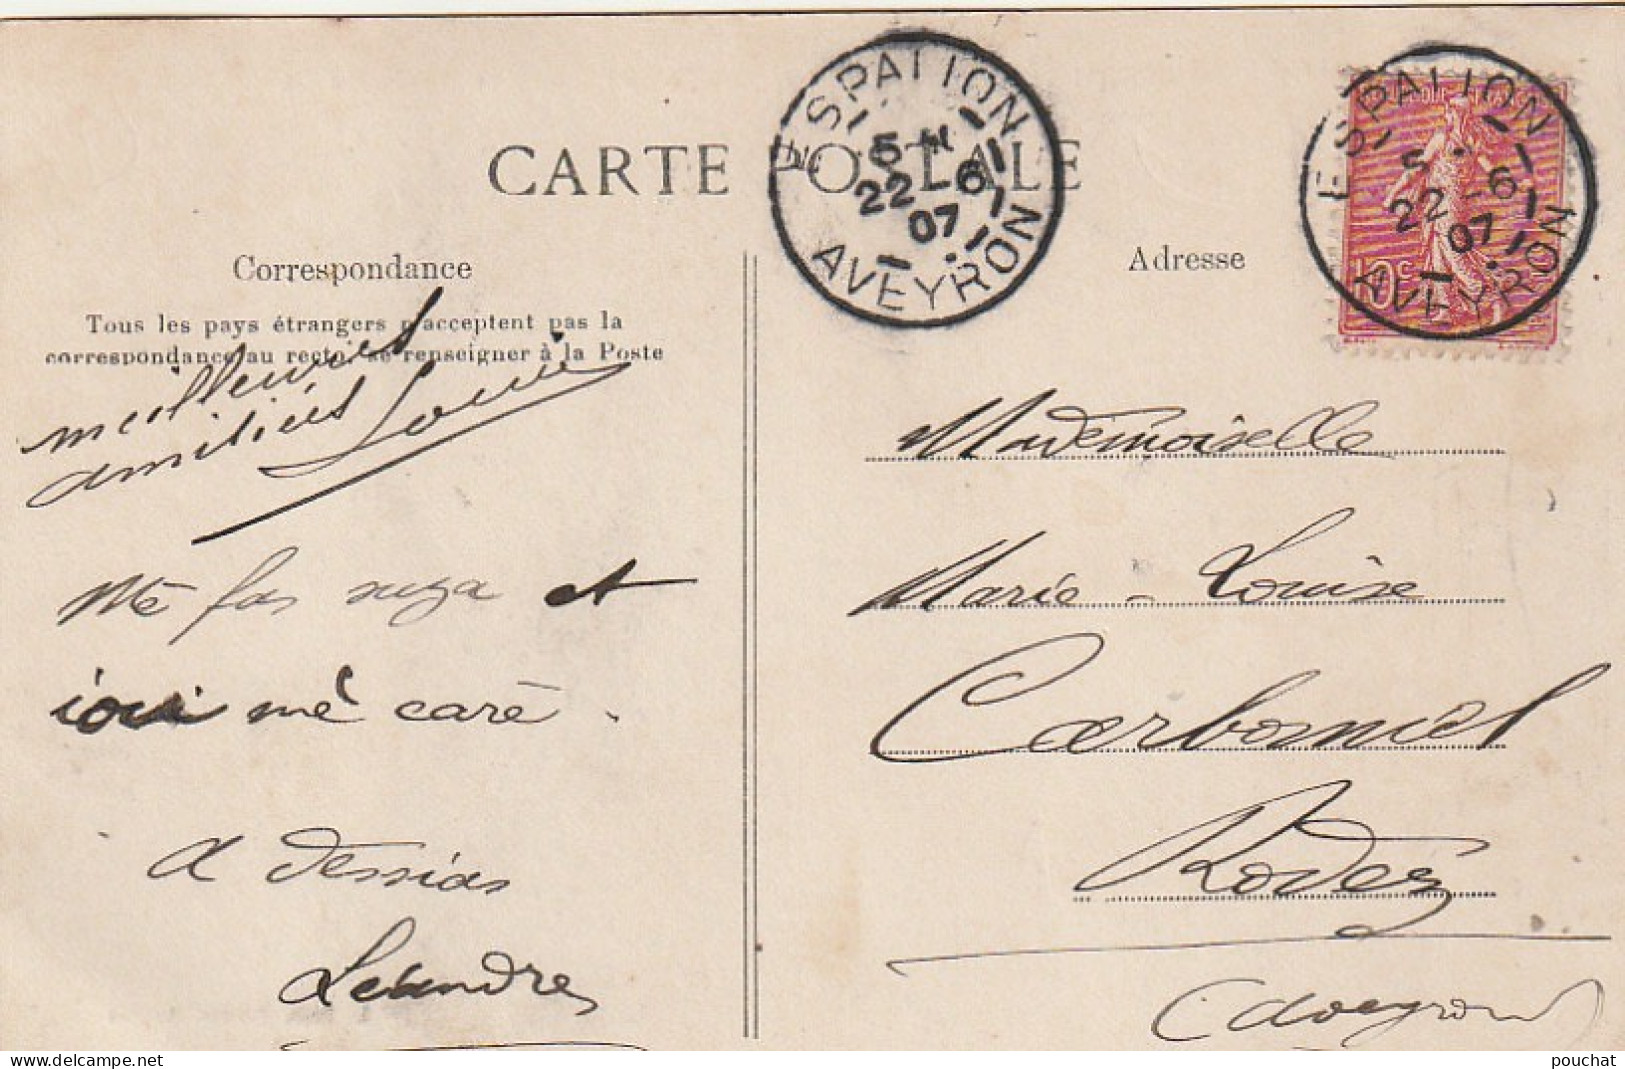 CARTE POSTALE
ESPALION
5 M
22 -6
07
AVEYRON
ESPALION
5
22 -6
07
AVEYRON
10c
Correspondance
Tous les pays étrangers n'acceptent pas la
correspondance au recto, se renseigner à la Poste
meilleures
amitiés Louise
Mé fas suza et
iou mé caré.
A dessias
Léandre
Adresse
Mademoiselle
Marie-Louise
Carbonnel
Rodez
(Aveyron)
pouchat